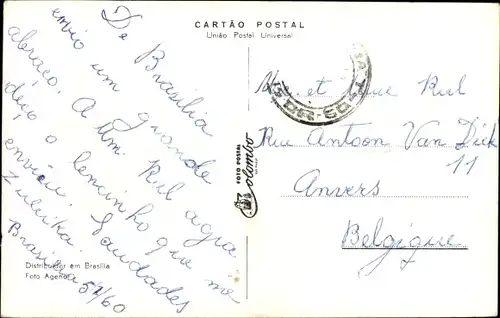 CARTÃO POSTAL
União Postal Universal
De Brasilia
envio um grande
abraço. A Mm. Rul agra
deço o lencinho que me
enviou. Saudades
Zuleika.
Brasilia 5/9/60
Distribuidor em Brasília
Foto Agenor
FOTO POSTAL
Colombo
et Mme Rul
Rue Antoon Van Dick
11
Anvers
Belgique